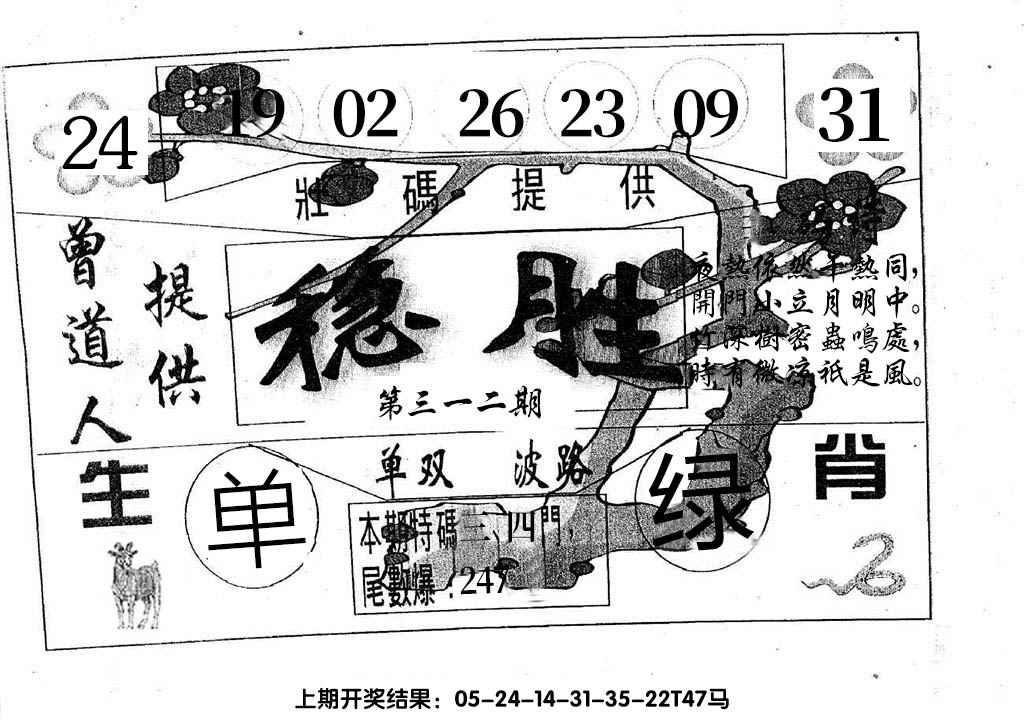 24 19 02 26 23 09 31
壯碼提供
特
曾道人
提供
稳胜
第三一二期
夜熱依然午熱同,
開門小立月明中。
竹深樹密蟲鳴處,
時有微凉祇是風。
生肖
单双 波路
单
绿
本期特碼三、四門,
尾數爆:247
上期开奖结果：05-24-14-31-35-22T47马